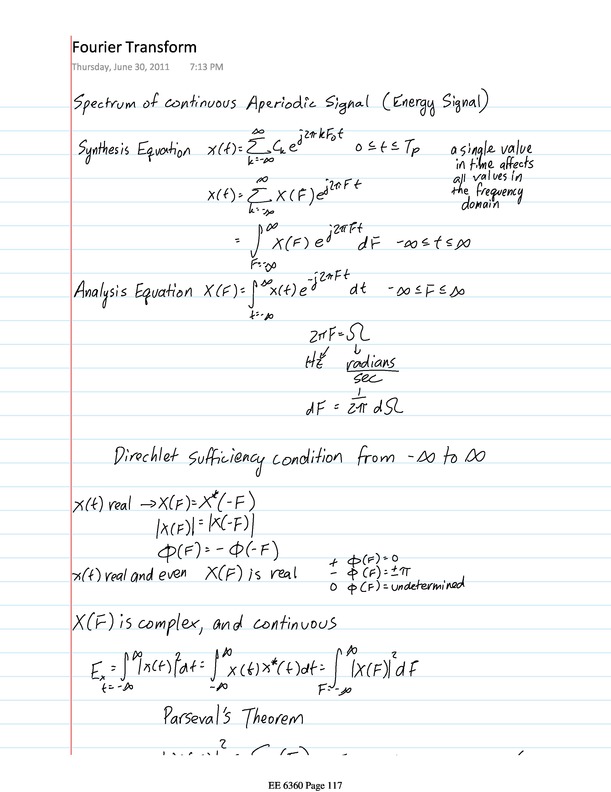 Fourier Transform
Thursday, June 30, 2011 7:13 PM
Spectrum of continuous Aperiodic Signal (Energy Signal)
Synthesis Equation x(t)=∑_{k=-∞}^{∞} C_k e^{j2πkF₀t} 0≤t≤Tp
a single value
in time affects
all values in
the frequency
domain
x(t)=∑_{k=-∞}^{∞} X(F)e^{j2πFt}
= ∫_{F=-∞}^{∞} X(F)e^{j2πFt} dF -∞≤t≤∞
Analysis Equation X(F)=∫_{t=-∞}^{∞} x(t)e^{-j2πFt} dt -∞≤F≤∞
2πF=Ω
Hz radians
sec
dF = 1/2π dΩ
Direchlet sufficiency condition from -∞ to ∞
x(t) real →X(F)=X*(-F)
|X(F)|=|X(-F)|
Φ(F)=-Φ(-F)
x(t) real and even X(F) is real
+ Φ(F)=0
- Φ(F)=±π
0 Φ(F)=undetermined
X(F) is complex, and continuous
E_x=∫_{t=-∞}^{∞}|x(t)|²dt=∫_{-∞}^{∞} x(t)x*(t)dt=∫_{F=-∞}^{∞}|X(F)|²dF
Parseval's Theorem
EE 6360 Page 117